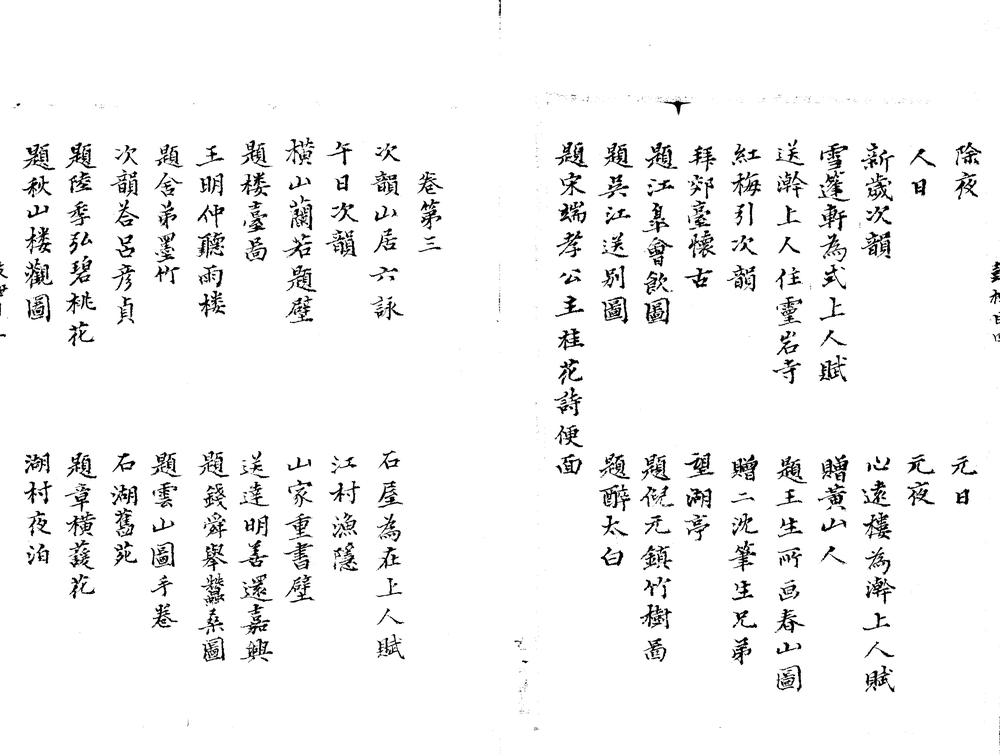 除夜　元日
人日　元夜
新歲次韻　心遠樓為澣上人賦
雪篷軒為式上人賦　贈黃山人
送澣上人住靈岩寺　題王生所画春山圖
紅梅引次韻　贈二沈筆生兄弟
拜郊臺懷古　望湖亭
題江皋會飲圖　題倪元鎮竹樹啚
題吳江送別圖　題醉太白
題宋端孝公主桂花詩便面
卷第三
次韻山居六詠　石屋為在上人賦
午日次韻　江村漁隱
橫山蘭若題壁　山家重書壁
題楼臺啚　送達明善還嘉興
王明仲聽雨楼　題錢舜舉蠶桑圖
題舍弟墨竹　題雲山圖手卷
次韻答呂彥貞　石湖舊苑
題陸季弘碧桃花　題章橫葵花
題秋山楼觀圖　湖村夜泊